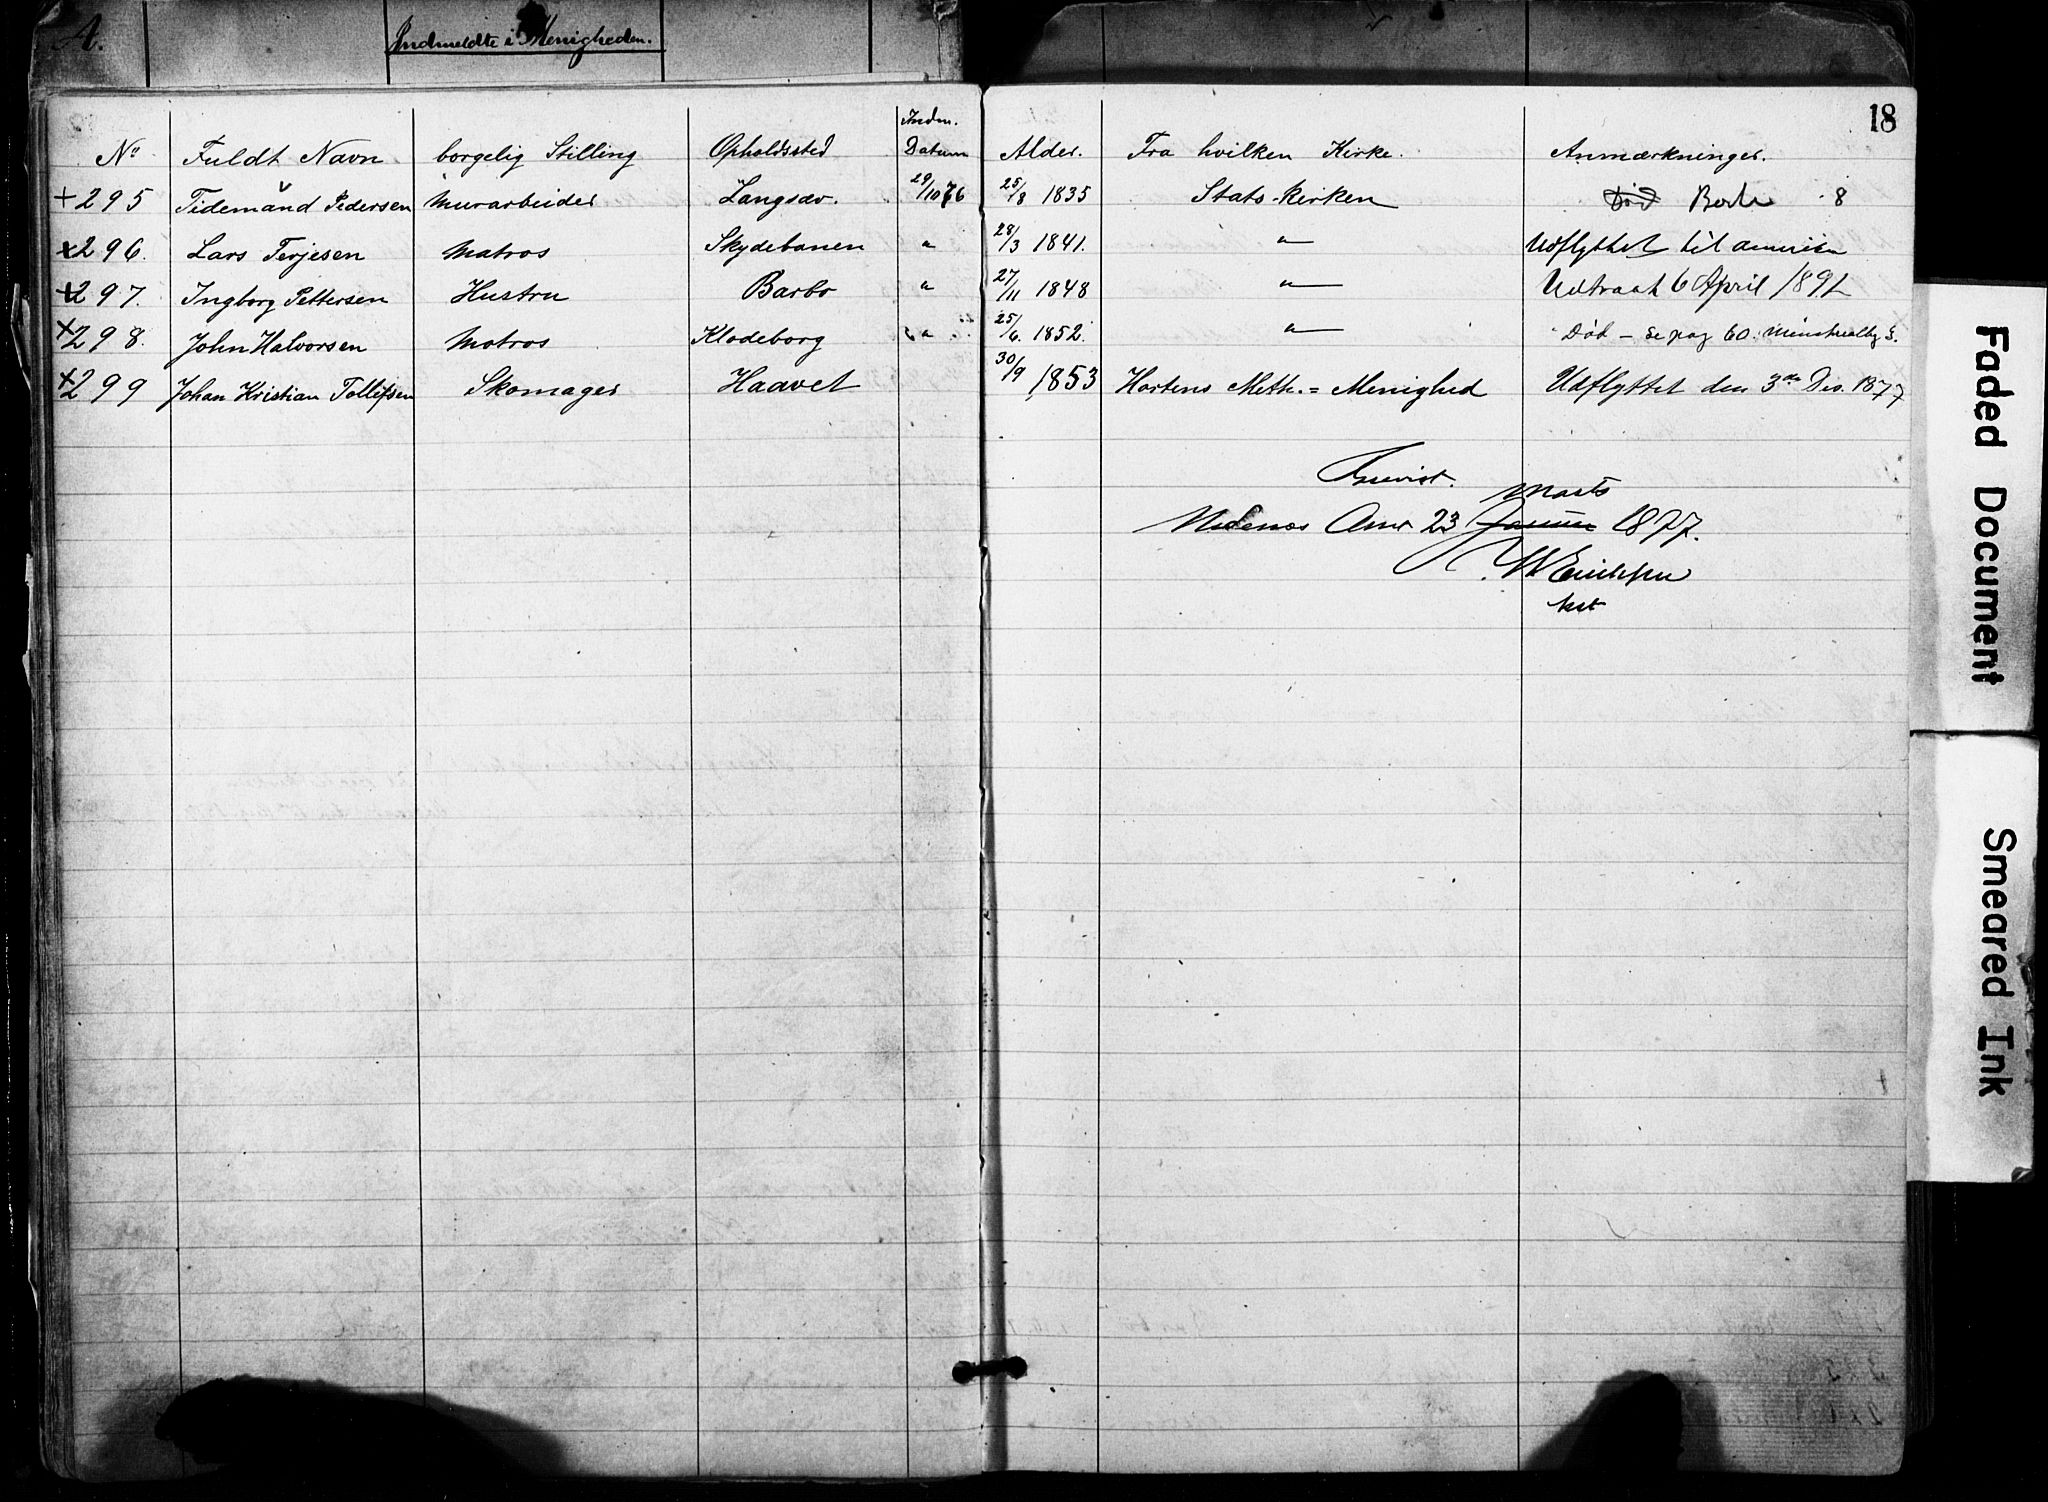 A. Indmeldte i Menigheden.
18
No Fuldt Navn borgelig Stilling Opholdssted Indm. Datum Alder. Fra hvilken Kirke. Anmærkninger.
+ 295 Tidemand Pedersen Murarbeider Langsæv. 29/10 76 25/8 1835 Stats-Kirken Død 8
x 296. Lars Terjesen Matros Skydebanen " 28/3 1841. " Udflyttet til
x 297. Ingborg Pettersen Hustru Barbo " 27/11 1848 " Udtraadt 6 April 1891
x 298. John Halvorsen Matros Klodeborg " 25/6. 1852. " Død – se pag 60.
x 299 Johan Kristian Tollefsen Skomager Haavet 30/9 1853 Hortens Meth.= Menighed Udflyttet den 3de Des. 1877
Marts
Nedenæs Amt 23 Januar 1877.
Faded Document
Smeared Ink